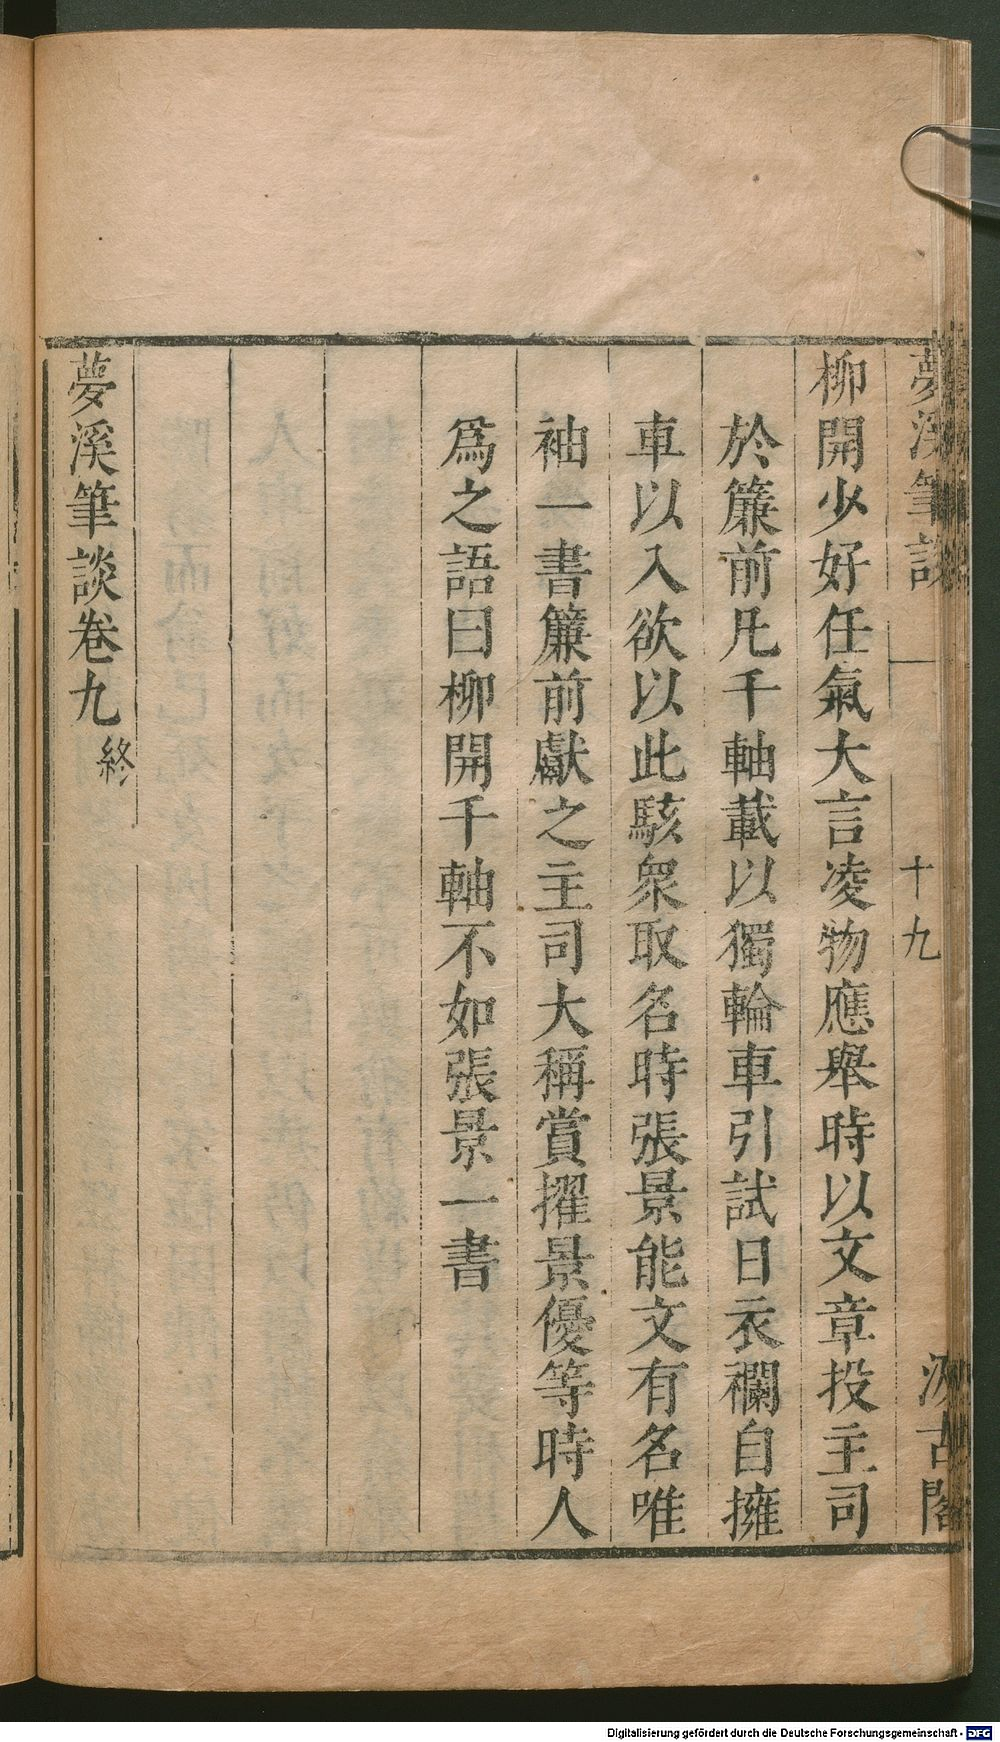 夢溪筆談
十九
汲古閣
柳開少好任氣大言凌物應舉時以文章投主司
於簾前凡千軸載以獨輪車引試日衣襴自擁
車以入欲以此駭衆取名時張景能文有名唯
袖一書簾前獻之主司大稱賞擢景優等時人
爲之語曰柳開千軸不如張景一書
夢溪筆談卷九 終
Digitalisierung gefördert durch die Deutsche Forschungsgemeinschaft - DFG